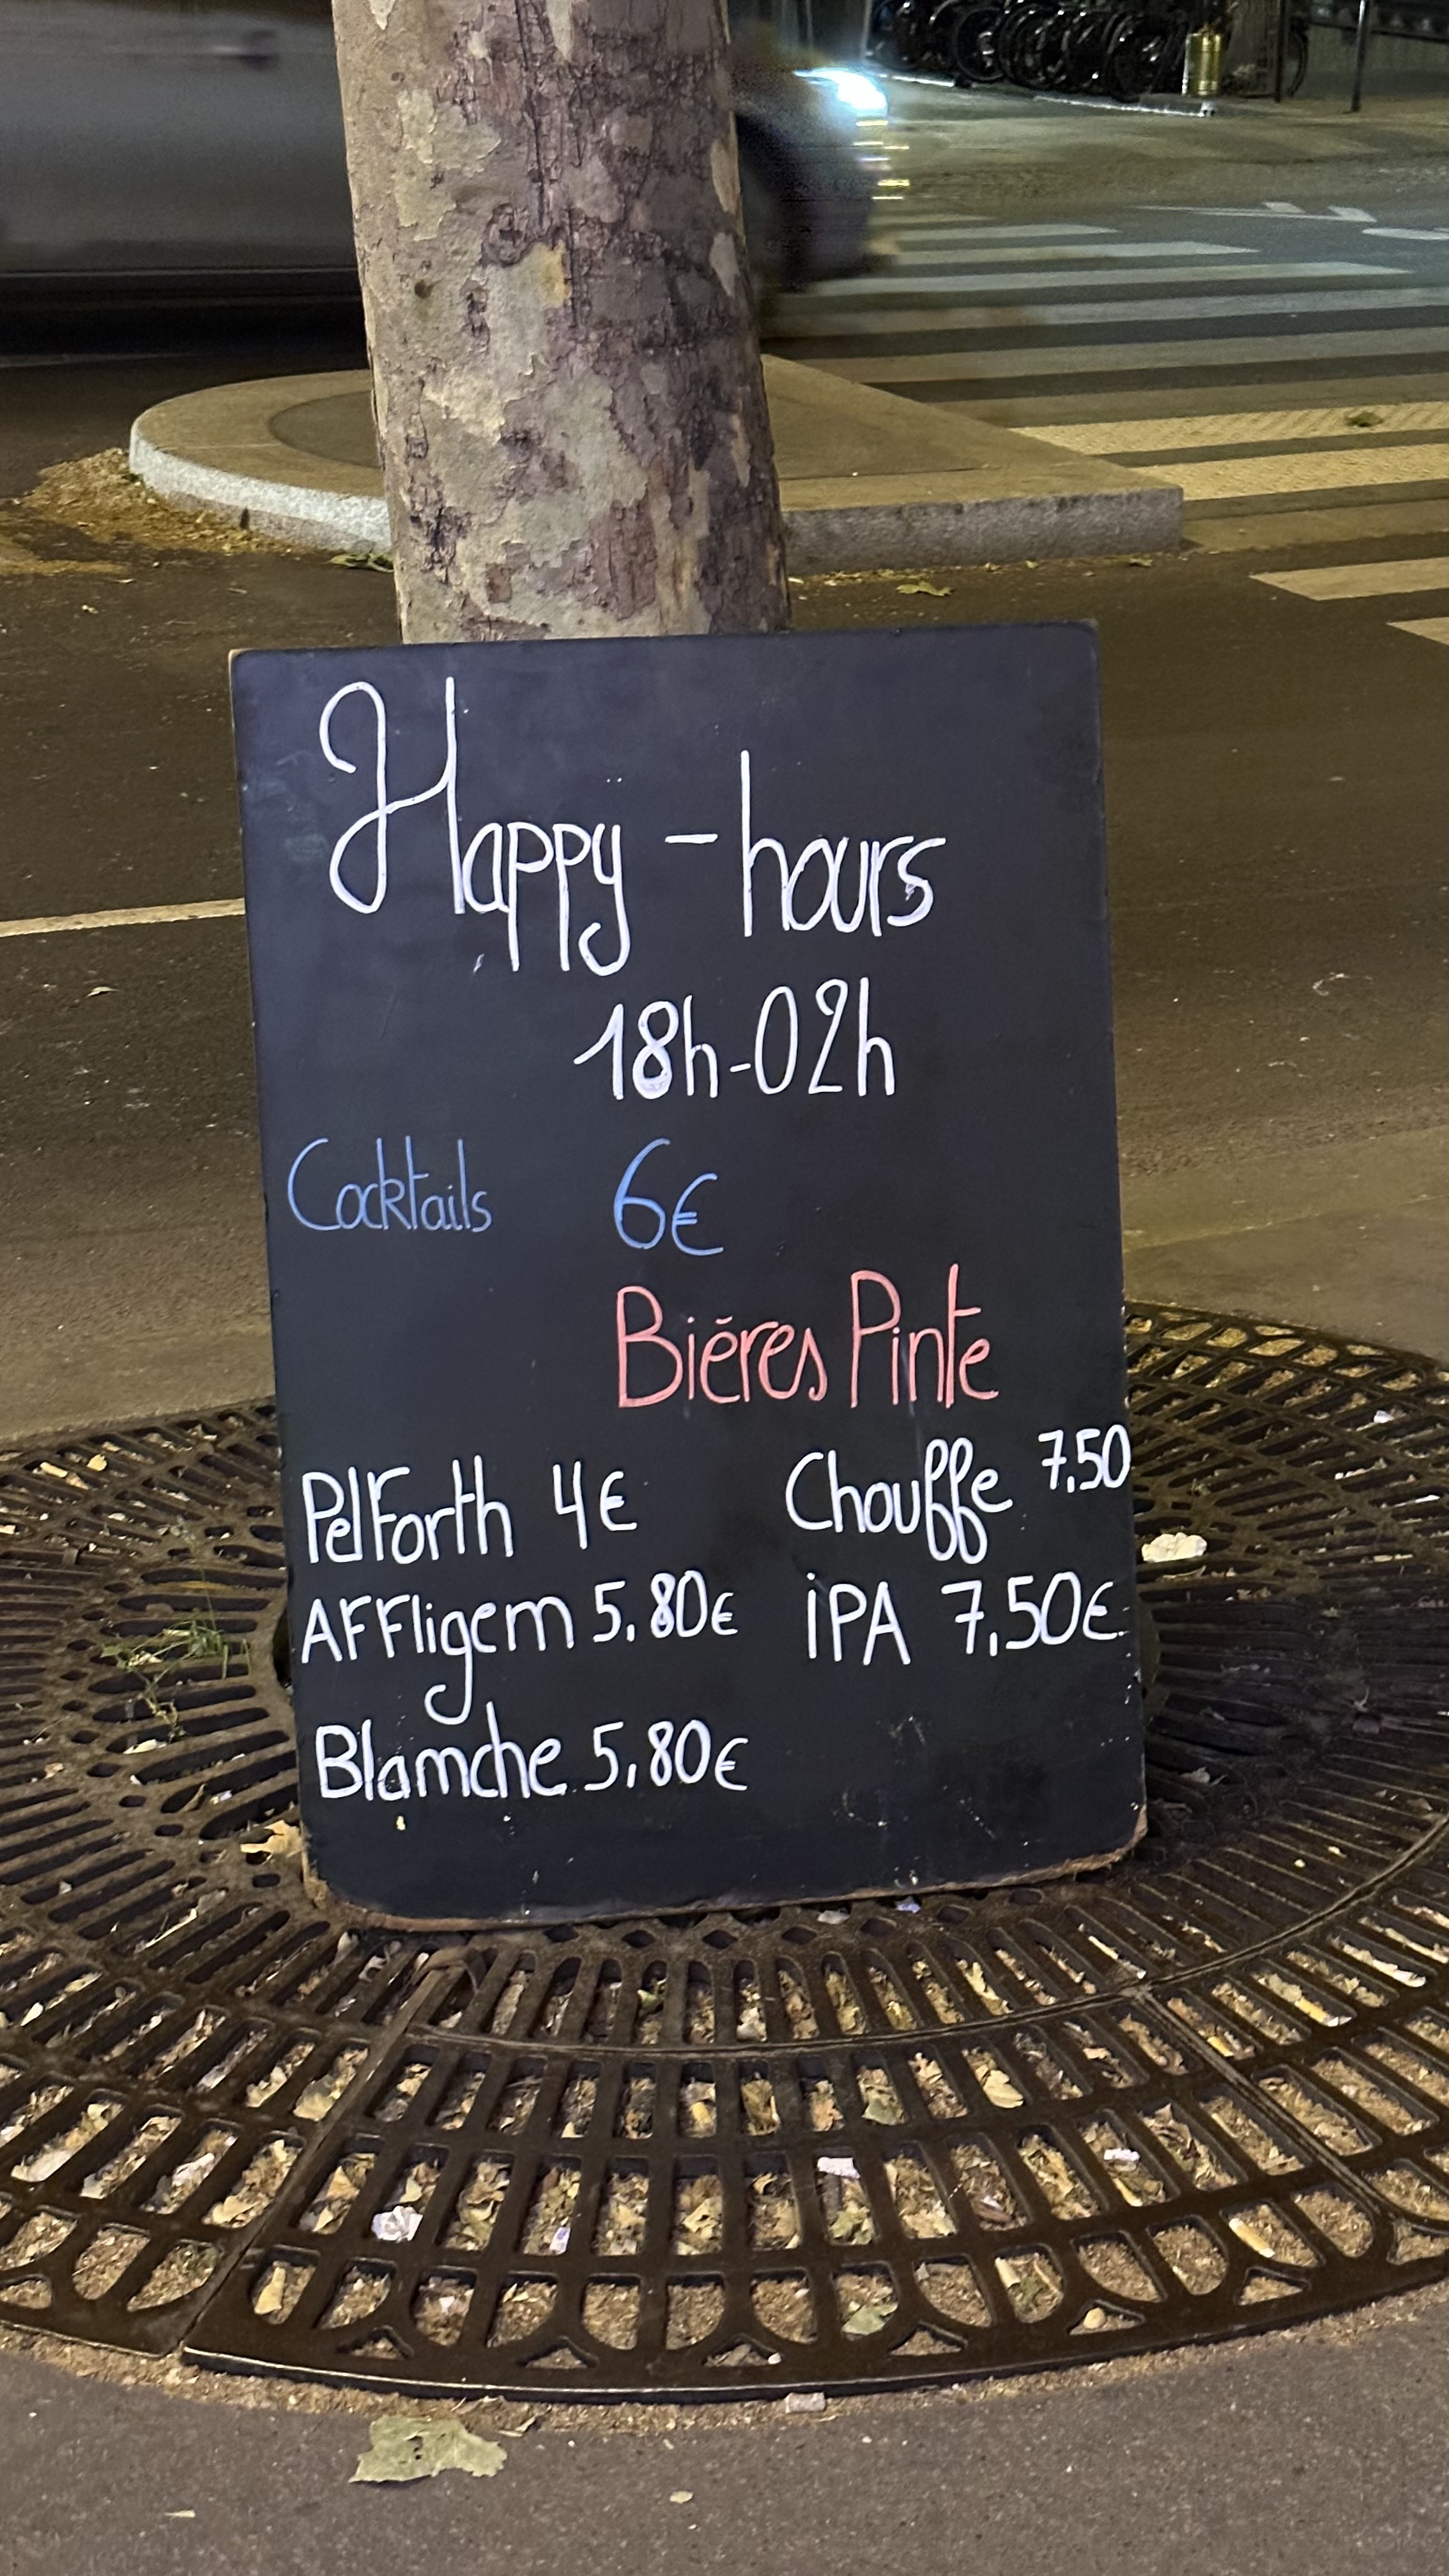 Happy - hours
18h-02h
Cocktails 6€
Bières Pinte
PelForth 4€ Chouffe 7,50
AFFligem 5,80€ iPA 7,50€
Blanche 5,80€